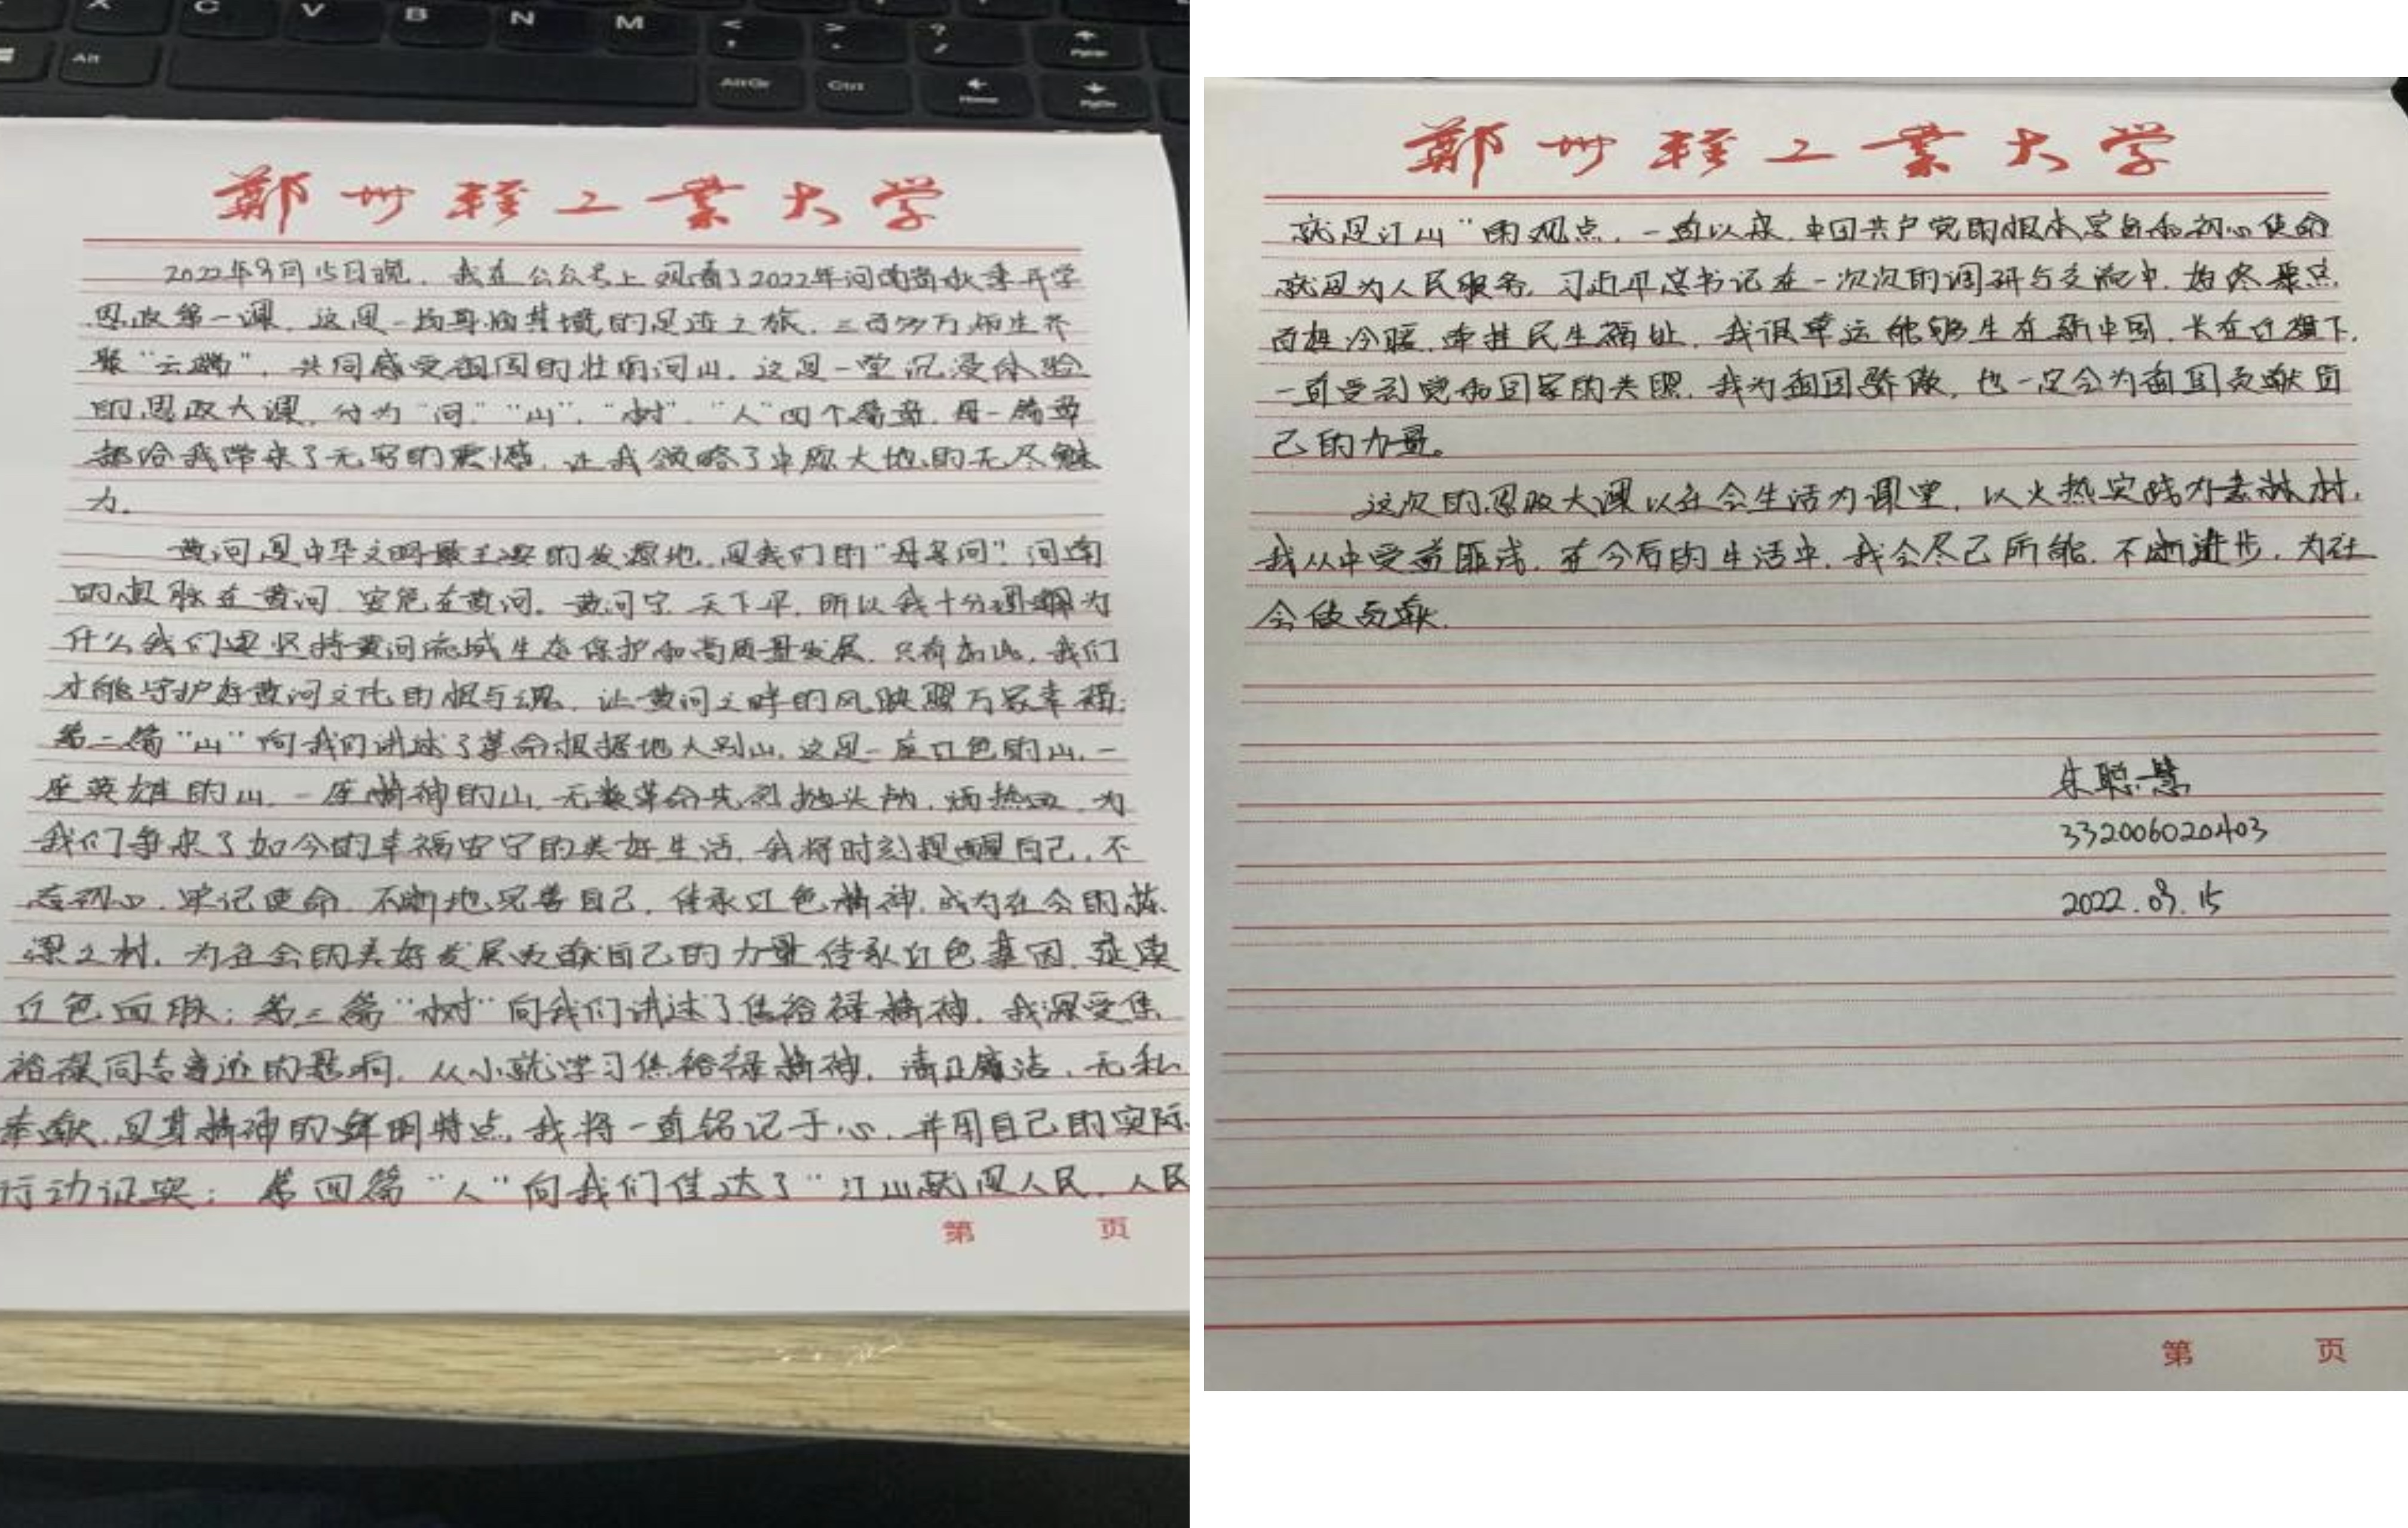 X C V B N M < , > . ? /
Alt AltGr Ctrl Home PgUp PgDn
郑州轻工业大学
2022年9月15日晚，我在公众号上观看了2022年河南省秋季开学
思政第一课，这是一场身临其境的足迹之旅，三百多万师生齐
聚“云端”，共同感受祖国的壮丽河山，这是一堂沉浸体验
的思政大课，分为“河”“山”，“树”，“人”四个篇章，每一篇章
都给我带来了无穷的震撼，让我领略了中原大地的无尽魅
力。
黄河是中华文明最主要的发源地，是我们的“母亲河”，河南
的血脉在黄河，安危在黄河，黄河宁，天下平，所以我十分理解为
什么我们要坚持黄河流域生态保护和高质量发展，只有如此，我们
才能守护好黄河文化的根与魂，让黄河之畔的风映照万家幸福；
第二篇“山”向我们讲述了革命根据地大别山，这是一座红色的山，一
座英雄的山，一座精神的山，无数革命先烈抛头颅，洒热血，为
我们争来了如今的幸福安宁的美好生活，我将时刻提醒自己，不
忘初心，牢记使命，不断地完善自己，传承红色精神，成为社会的栋
梁之材，为社会的美好发展贡献自己的力量传承红色基因，赓续
红色血脉；第三篇“树”向我们讲述了焦裕禄精神，我深受焦
裕禄同志事迹的影响，从小就学习焦裕禄精神，清正廉洁，无私
奉献，是其精神的鲜明特点，我将一直铭记于心，并用自己的实际
行动证实；第四篇“人”向我们传达了“江山就是人民，人民
第 页
郑州轻工业大学
就是江山”的观点，一直以来，中国共产党的根本宗旨和初心使命
就是为人民服务，习近平总书记在一次次的调研与交流中，始终聚点
百姓冷暖，牵挂民生福址，我很幸运能够生在新中国，长在红旗下，
一直受到党和国家的关照，我为祖国骄傲，也一定会为祖国贡献自
己的力量。
这次的思政大课以社会生活为课堂，以火热实践为素材，
我从中受益匪浅，在今后的生活中，我会尽己所能，不断进步，为社
会做贡献．
朱聪慧
332006020403
2022.09.15
第 页